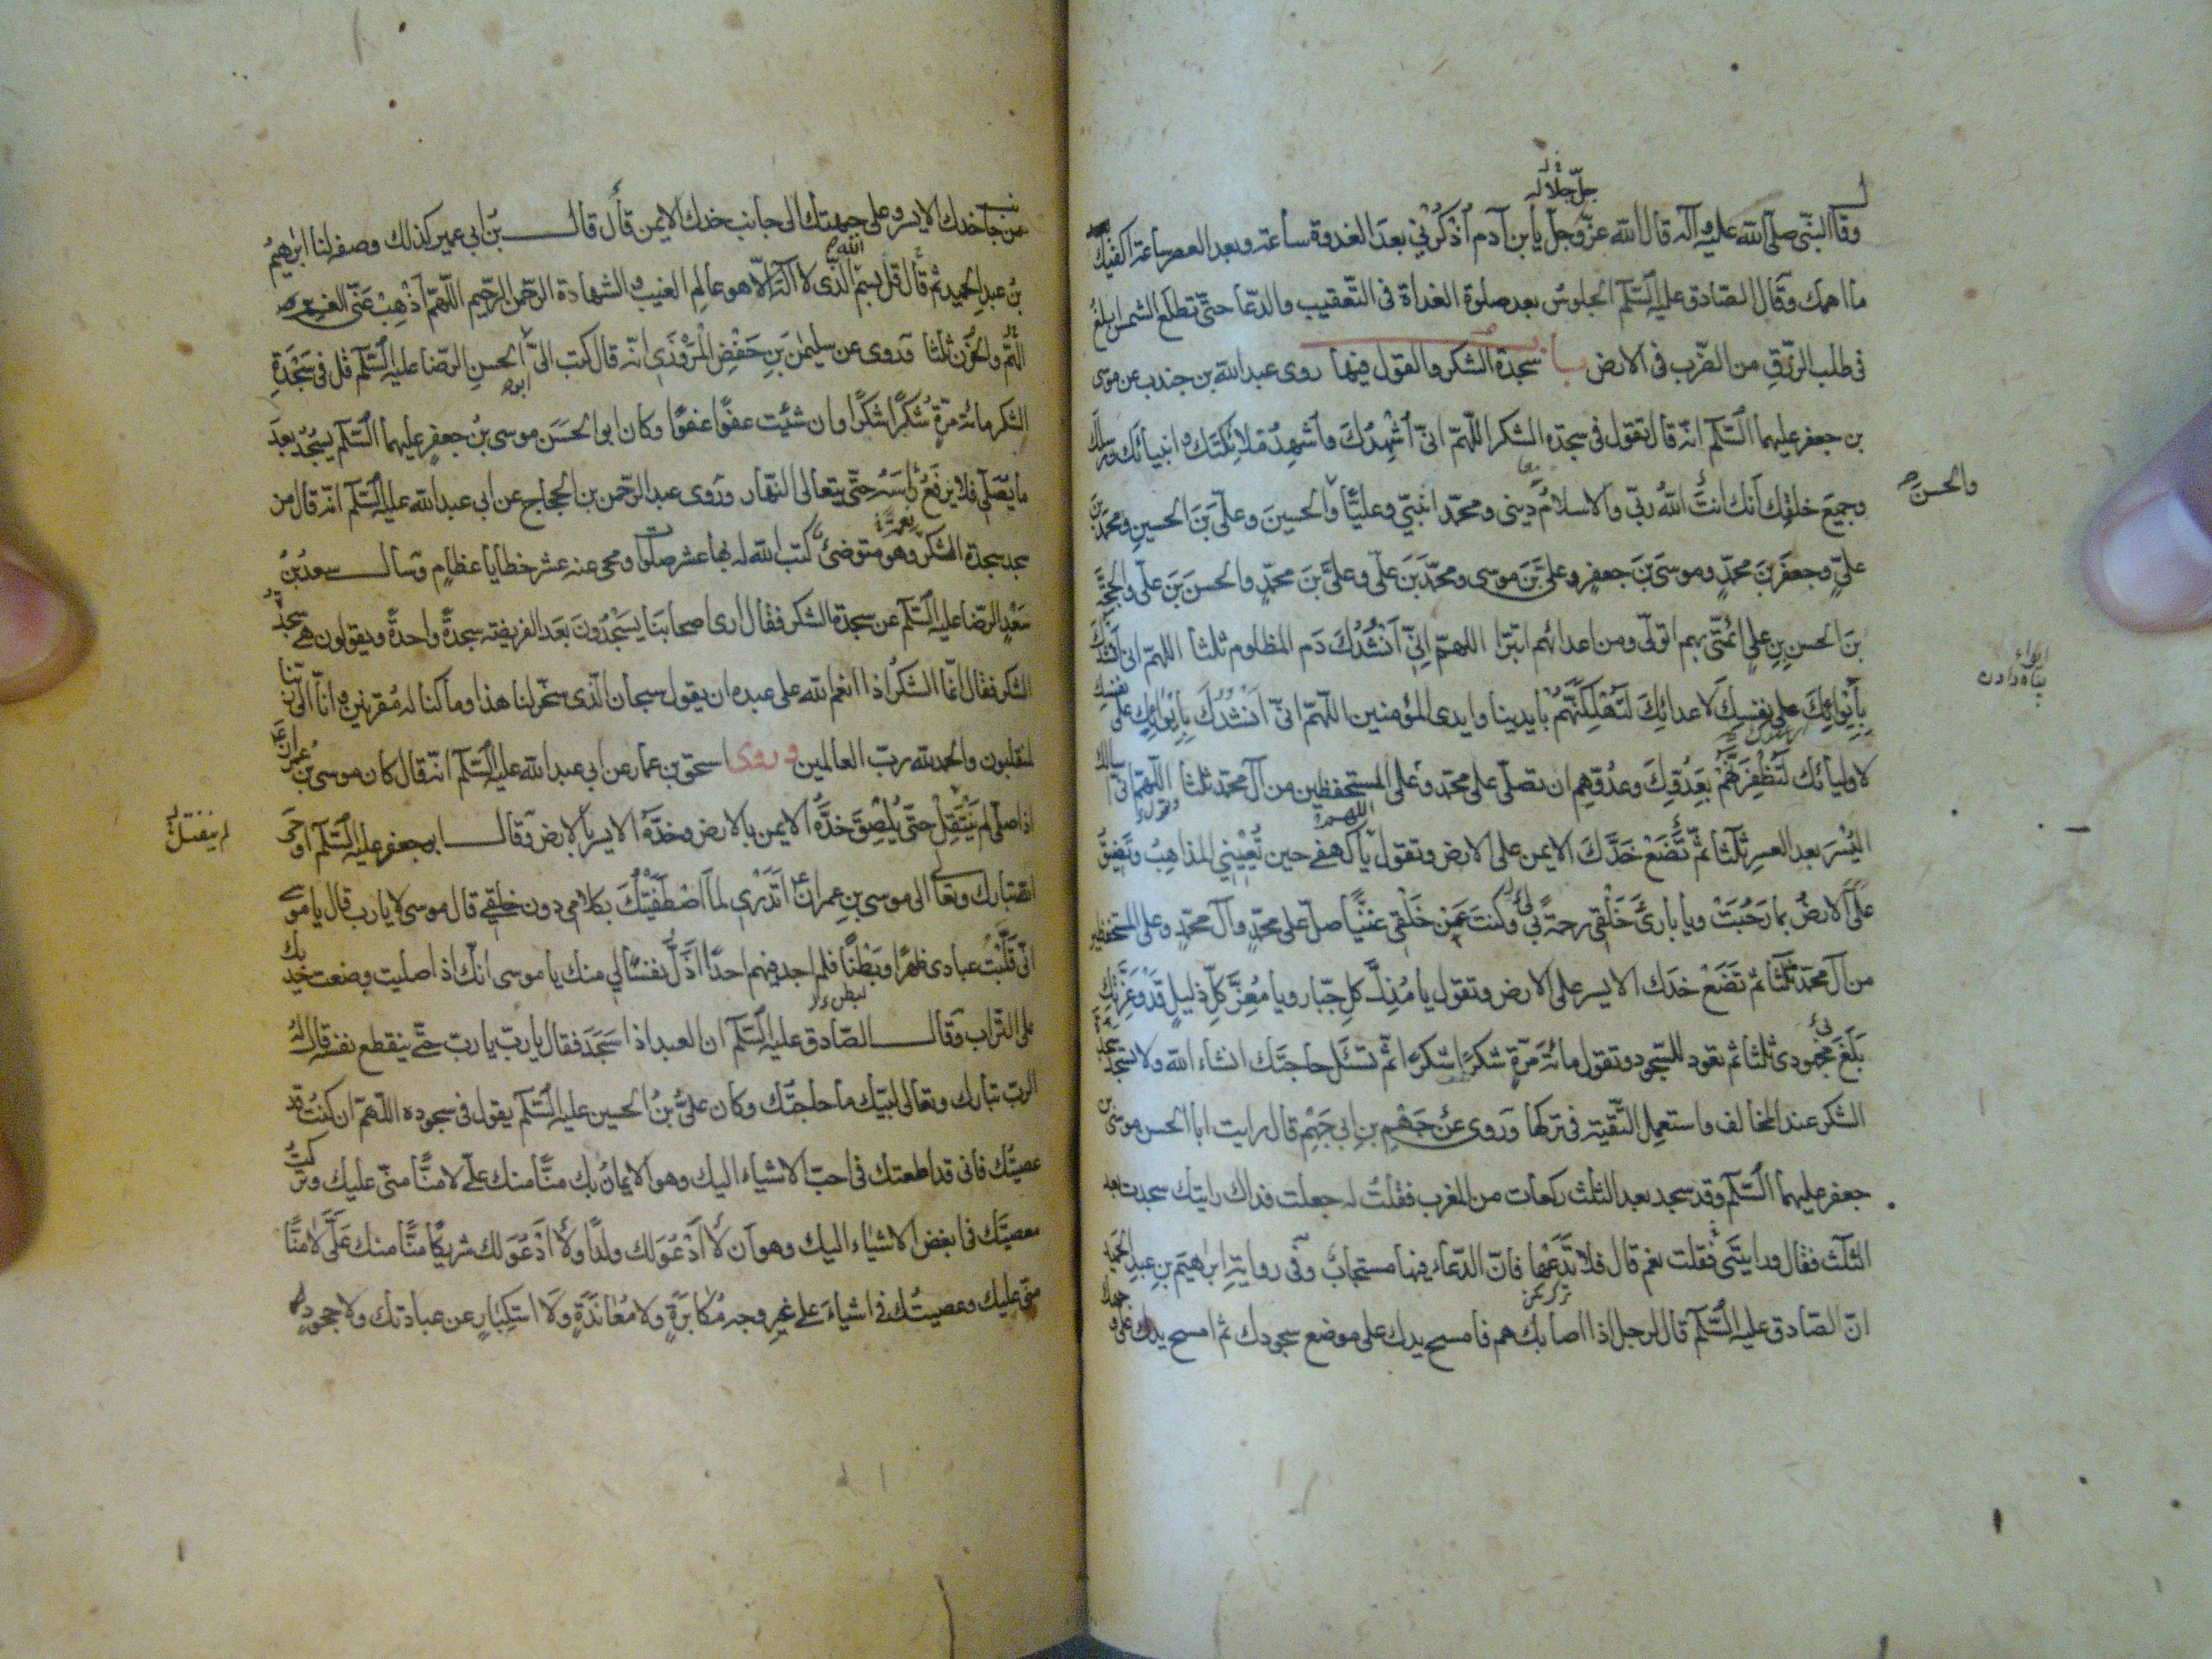 جل جلاله
وقال النبي صلى الله عليه وآله قال الله عز وجل يا بن آدم أذكرني بعد الغدوة ساعة وبعد العصر ساعة اكفيك
ما اهمك وقال الصادق عليه السلم الجلوس بعد صلوة الغداة في التعقيب والدعا حتى تطلع الشمس ابلغ
في طلب الرزق من الضرب في الارض باب سجدة الشكر والقول فيها روى عبدالله بن جندب عن موسى
بن جعفر عليهما السلم انه قال تقول في سجدة الشكر اللهم اني أشهدك وأشهد ملائكتك و انبيائك ورسلك
وجميع خلقك أنك انت الله ربي والاسلام ديني ومحمدا نبيي وعليا والحسين وعلي بن الحسين ومحمد بن
والحسن
علي وجعفر بن محمد وموسى بن جعفر وعلي بن موسى ومحمد بن علي وعلي بن محمد والحسن بن علي والحجة
بن الحسن بن علي ائمتي بهم اتولى ومن اعدائهم اتبرا اللهم اني أنشدك دم المظلوم ثلثا اللهم اني انشدك
ايواء
پناه دادن
بإيوائك على نفسك لاعدائك لتهلكنهم بأيدينا وايدى المؤمنين اللهم اني انشدك بإيوائك على نفسك
لاوليائك لتظفرنهم بعدوك وعدوهم ان تصلي على محمد وعلى المستحفظين من آل محمد ثلثا اللهم اني اسالك
اليسر بعد العسر ثلثا ثم تضع خدك الايمن على الارض وتقول يا كهفي حين تعييني المذاهب وتضيق
على الارض بما رحبت ويا بارئ خلقي رحمة بي وكنت عن خلقي غنيا صل على محمد وآل محمد وعلى المستحفظين
من آل محمد ثلثا ثم تضع خدك الايسر على الارض وتقول يا مذل كل جبار ويا معز كل ذليل قد وعزتك
بلغ مجهودي ثلثا ثم تعود للسجود وتقول مائة مرة شكرا شكرا ثم تسئل حاجتك انشاء الله ولا تسجد سجدة
الشكر عند المخالف واستعمل التقية في تركها وروى عن جهم بن ابي جهم قال رايت ابا الحسن موسى بن
جعفر عليهما السلم وقد سجد بعد الثلث ركعات من المغرب فقلت له جعلت فداك رايتك سجدت بعد
الثلث فقال ورايتني فقلت نعم قال فلا تدعها فان الدعاء فيها مستجاب وفي رواية ابرهيم بن عبد الحميد
ان الصادق عليه السلم قال لرجل اذا اصابك هم فامسح يدك على موضع سجودك ثم امسح يدك على وجهك
من جانب خدك الايسر وعلى جبهتك الى جانب خدك الايمن قال قال بن ابي عمير كذلك وصفه لنا ابرهيم
بن عبد الحميد ثم قال قل بسم الله الذي لا اله الا هو عالم الغيب و الشهادة الرحمن الرحيم اللهم أذهب عني
الهم والحزن ثلثا وروى عن سليمن بن حفص المروزي انه قال كتب الي ابو الحسن الرضا عليه السلم قل في سجدة
الشكر مائة مرة شكرا شكرا وان شئت عفوا عفوا وكان ابو الحسن موسى بن جعفر عليهما السلم يسجد بعد
ما يصلي فلا يرفع رأسه حتى يتعالى النهار وروى عبد الرحمن بن الحجاج عن ابي عبد الله عليه السلم انه قال من
سجد سجدة الشكر وهو متوضئ كتب الله له بها عشر صلوات ومحى عنه عشر خطايا عظام وسال سعد بن
سعد الرضا عليه السلم عن سجدة الشكر فقال ارى اصحابنا يسجدون بعد الفريضة سجدة واحدة ويقولون هي سجدة
الشكر فقال انما الشكر اذا انعم الله على عبده ان يقول سبحان الذي سخر لنا هذا وما كنا له مقرنين وانا الى ربنا
لمنقلبون والحمد لله رب العالمين و روى اسحق بن عمار عن ابي عبد الله عليه السلم انه قال كان موسى بن عمران
اذا صلى لم ينتقل حتى يلصق خده الايمن بالارض وخده الايسر بالارض وقال ابو جعفر عليه السلم اوحى
لم ينفتل
الله تبارك وتعالى الى موسى بن عمران أتدري لما اصطفيتك بكلامي دون خلقي قال موسى لا يا رب قال يا موسى
اني قلبت عبادي ظهرا وبطنا فلم اجد فيهم احدا اذل نفسا لي منك يا موسى انك اذا صليت وضعت خديك
على التراب وقال الصادق عليه السلم ان العبد اذا سجد فقال يا رب يا رب حتى ينقطع نفسه قال له
الرب تبارك وتعالى لبيك ما حاجتك وكان علي بن الحسين عليه السلم يقول في سجوده اللهم ان كنت قد
عصيتك فاني قد اطعتك في احب الاشياء اليك وهو الايمان بك منا منك علي لا منا مني عليك وتركت
معصيتك في ابغض الاشياء اليك وهو أن لا أدعو لك ولدا ولا أدعو لك شريكا منا منك علي لا منا
مني عليك وعصيتك في اشياء على غير وجه مكابرة ولا معاندة ولا استكبار عن عبادتك ولا جحود